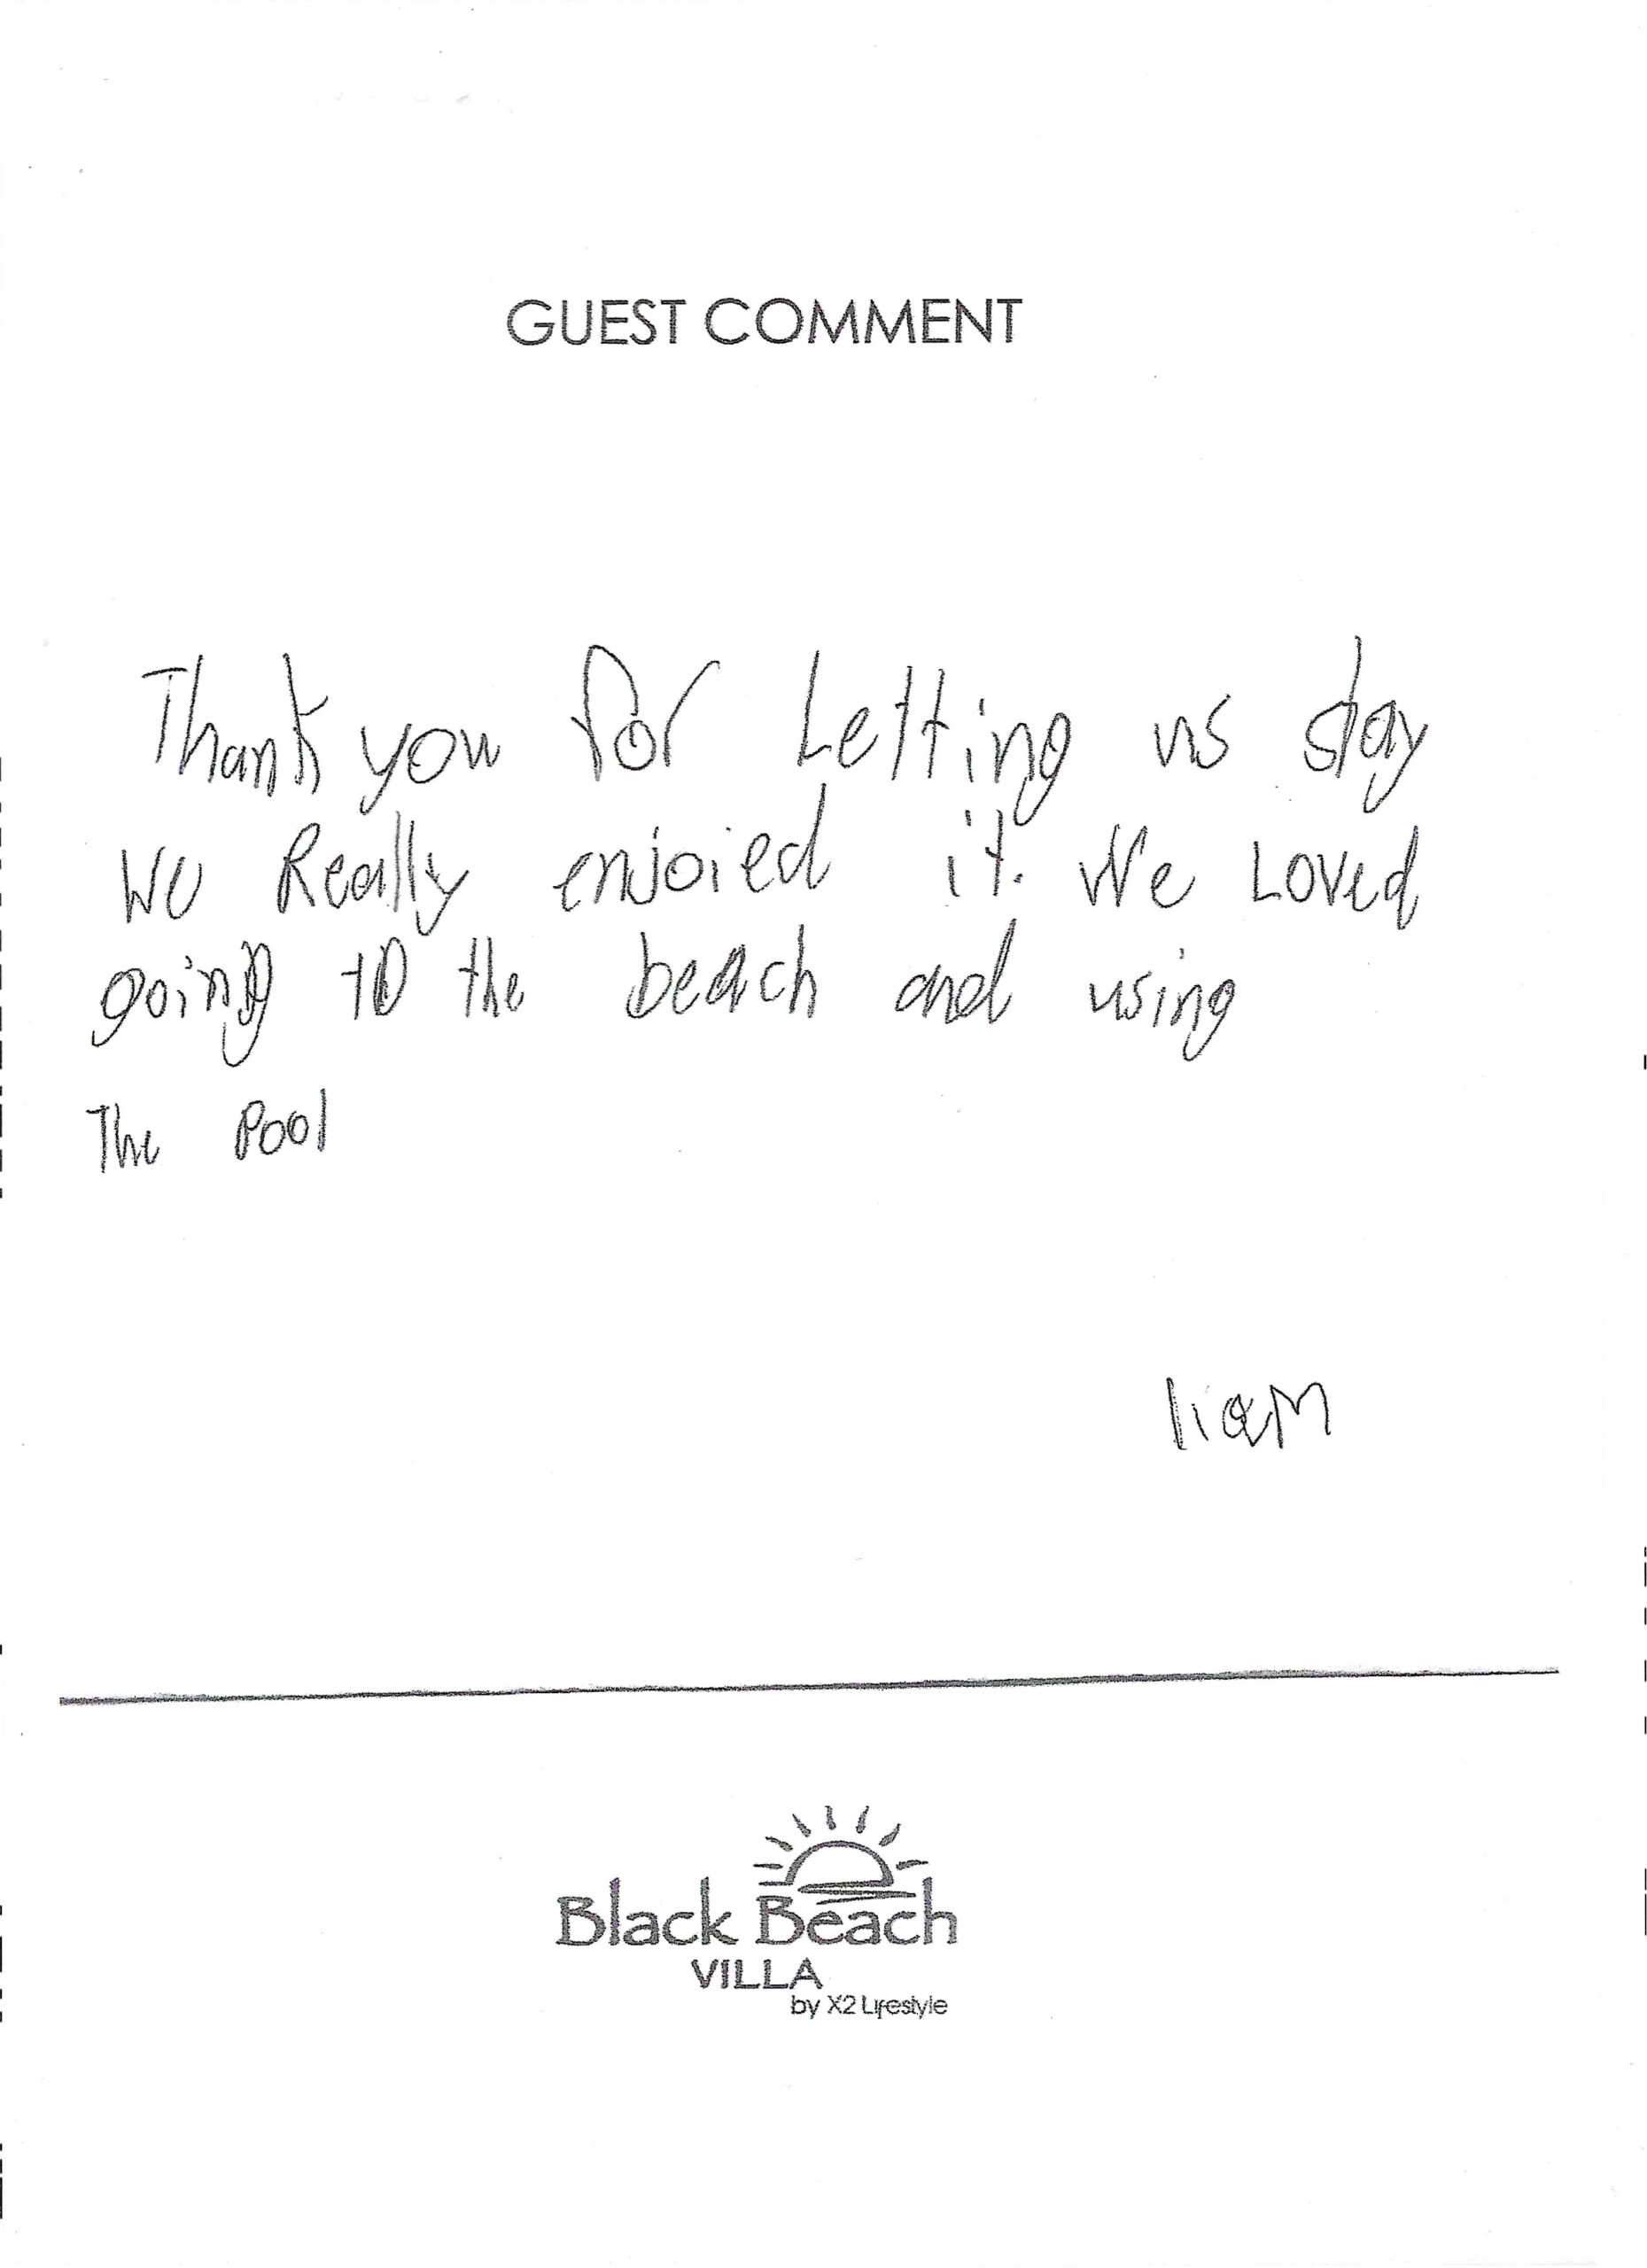 GUEST COMMENT
Thank you for Letting us stay
We Really enjoied it. We Loved
going to the beach and using
The Pool
liaM
Black Beach
VILLA
by X2 Lifestyle